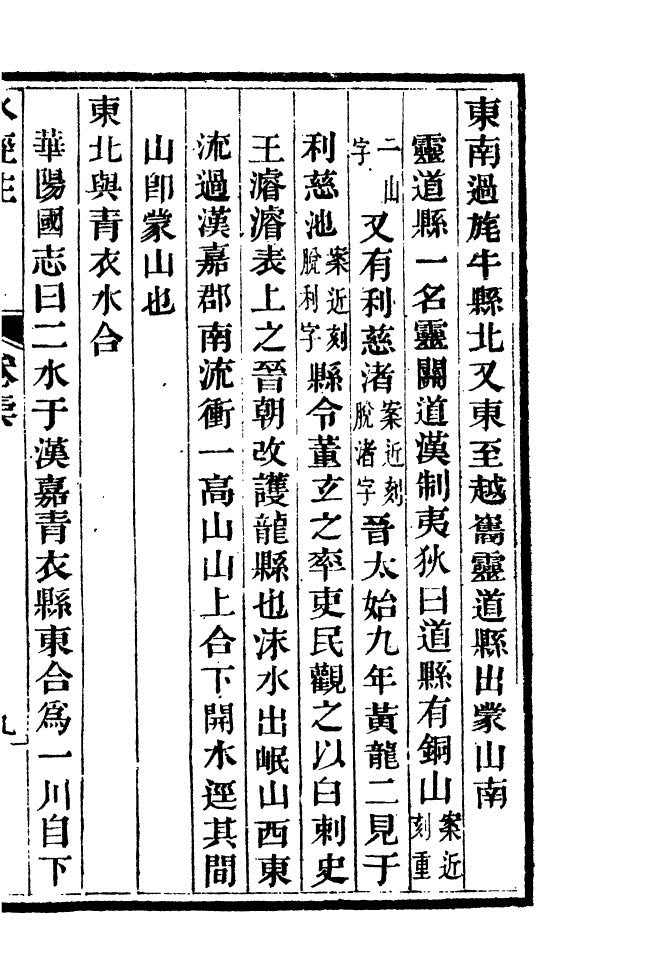 東南過旄牛縣北又東至越巂靈道縣出蒙山南
靈道縣一名靈關道漢制夷狄曰道縣有銅山案近刻重
二山字又有利慈渚案近刻脫渚字晉太始九年黃龍二見于
利慈池案近刻脫利字縣令董玄之率吏民觀之以白刺史
王濬濬表上之晉朝改護龍縣也沫水出岷山西東
流過漢嘉郡南流衝一高山山上合下開水逕其間
山卽蒙山也
東北與青衣水合
華陽國志曰二水于漢嘉青衣縣東合爲一川自下
水經注 九